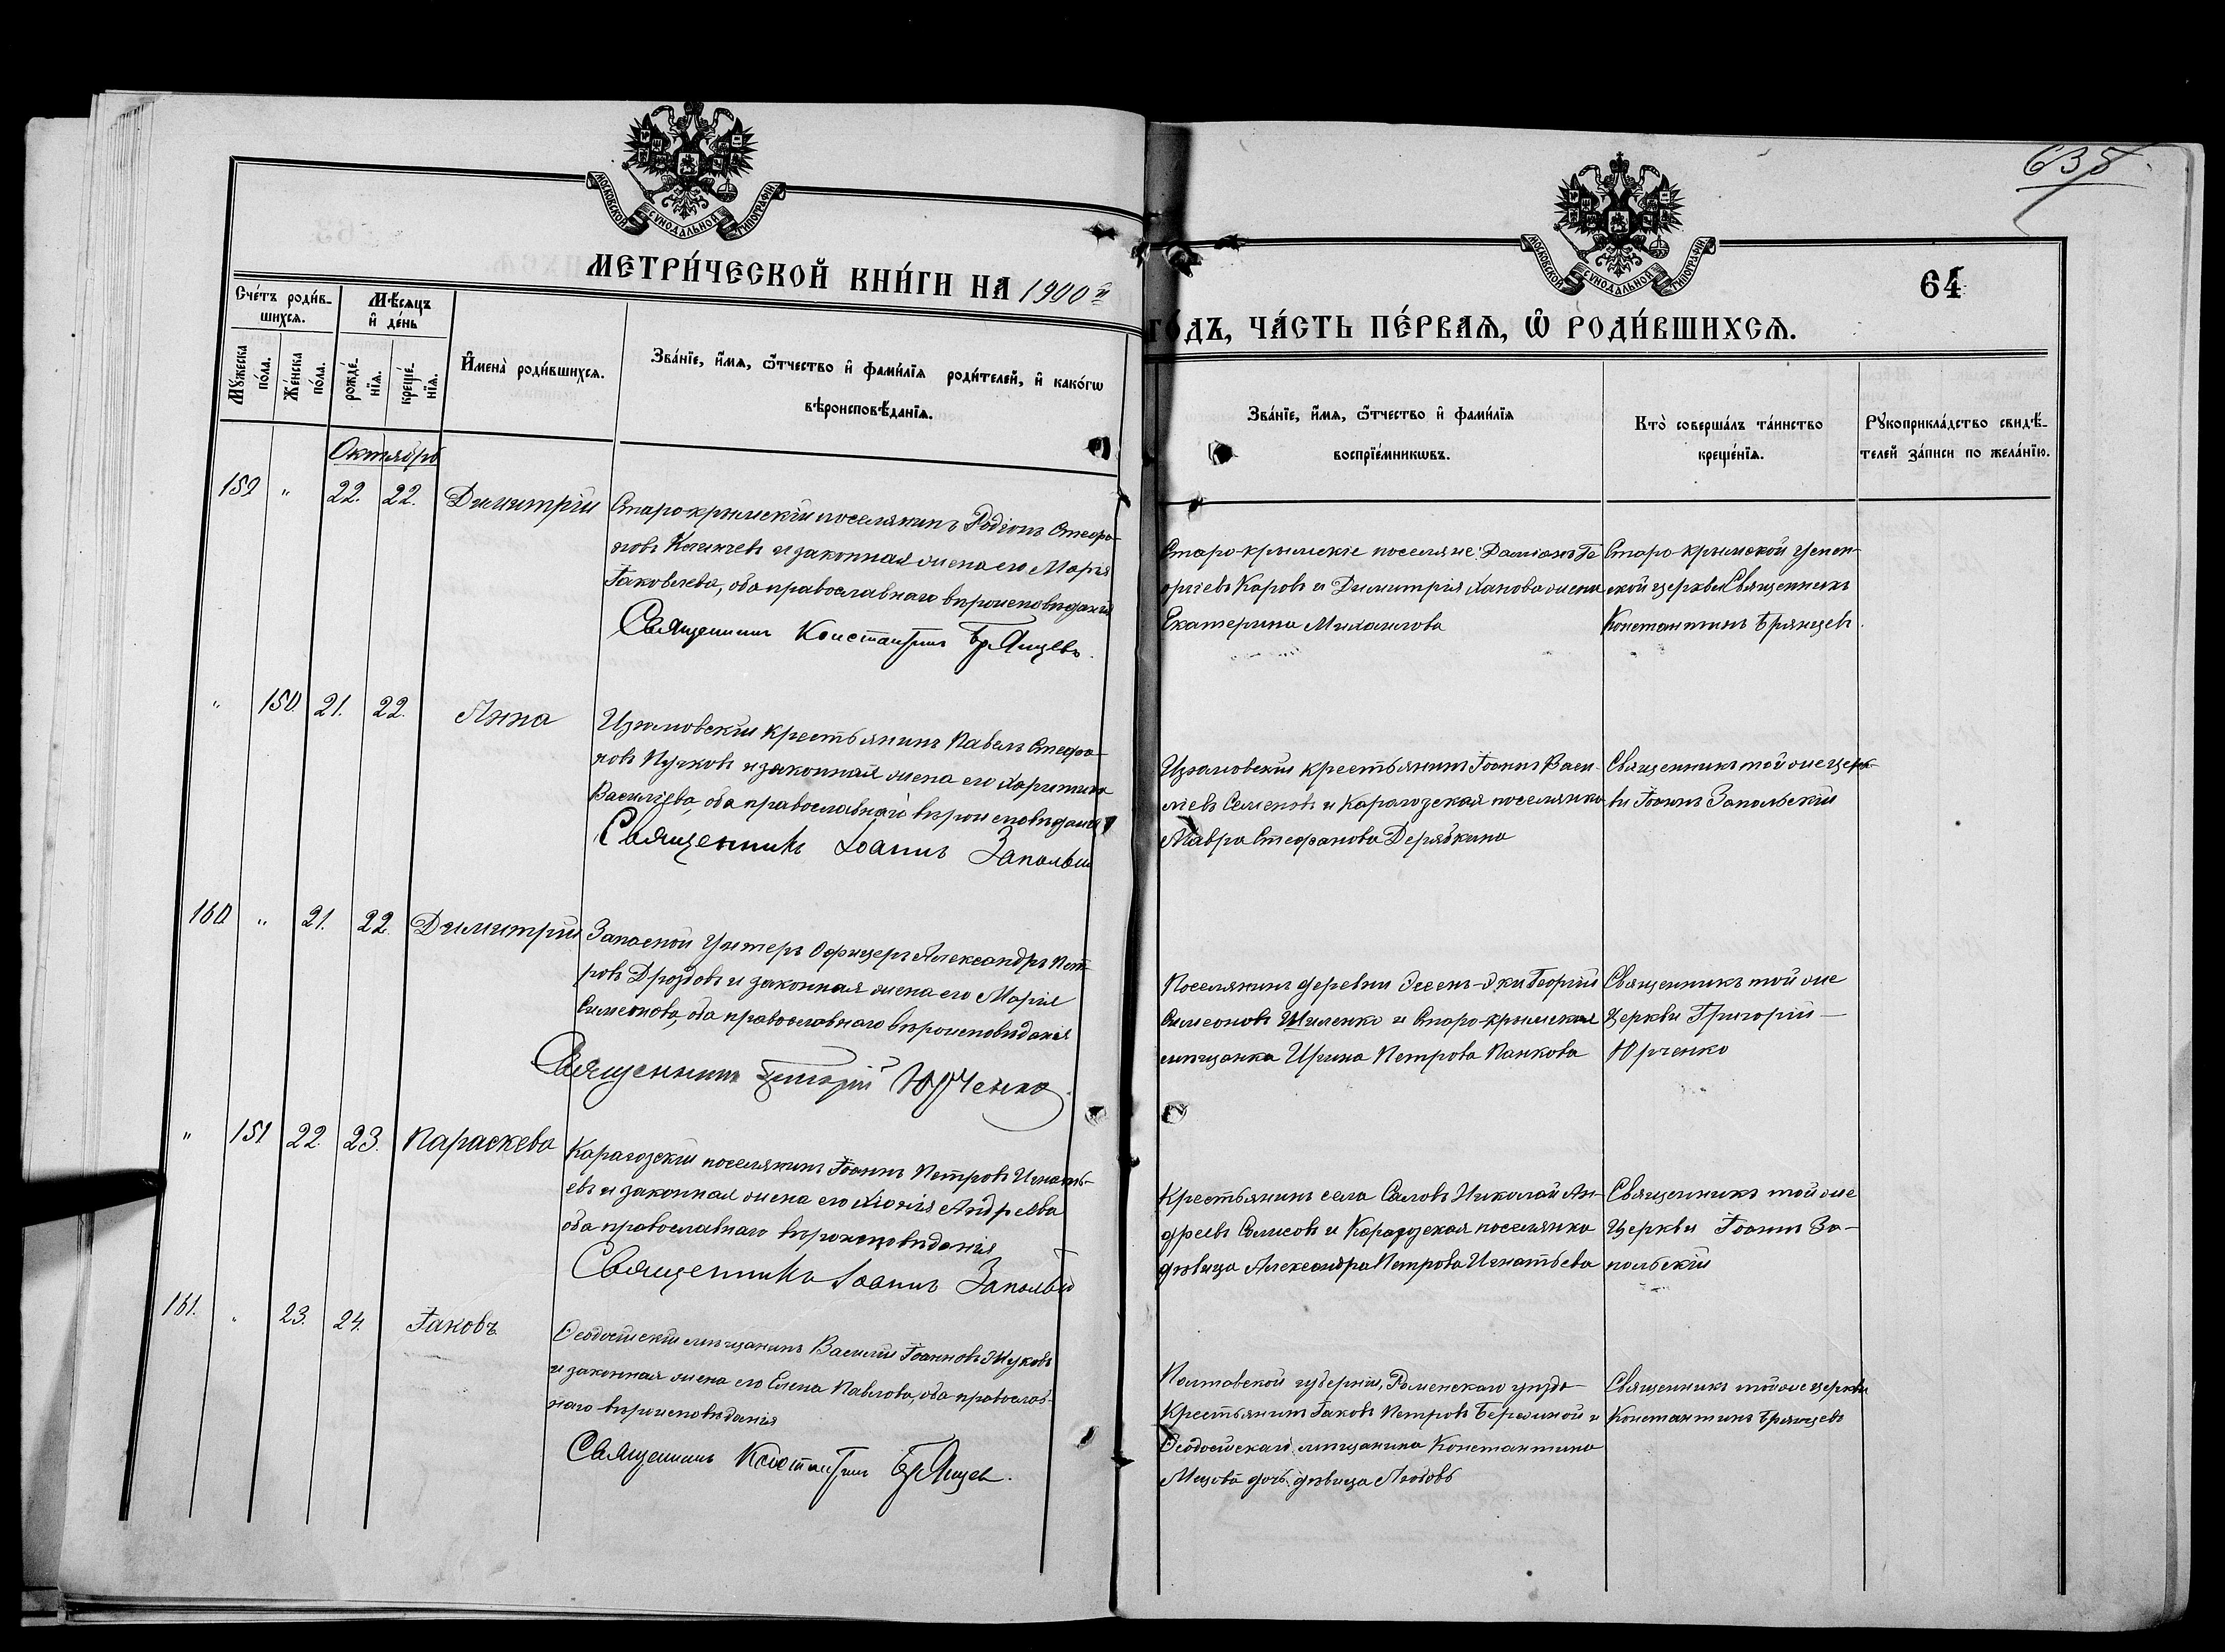 63 б
МОСКОВСКОЙ СѴНОДАЛЬНОЙ ТИПОГРАФІИ
МОСКОВСКОЙ СѴНОДАЛЬНОЙ ТИПОГРАФІИ
64
МЕТРИ́ЧЕСКОЙ КНИ́ГИ НА 1900 й
ГО́ДЪ, ЧА́СТЬ ПЕ́РВАѦ, Ѡ҆ РОДИ́ВШИХСѦ.
Сче́тъ роди́в-
шихсѧ.
Мꙋ́жеска
по́ла.
Же́нска
по́ла.
Мѣ́сѧцъ
и҆ де́нь
рожде́-
нїѧ.
креще́-
нїѧ.
И҆мена̀ роди́вшихсѧ.
Зва́нїе, и҆́мѧ, ѻ҆́тчество и҆ фами́лїѧ роди́телей, и҆ како́гѡ
вѣроисповѣ́данїѧ.
Зва́нїе, и҆́мѧ, ѻ҆́тчество и҆ фами́лїѧ
воспрїе́мникѡвъ.
Кто̀ соверша́лъ та́инство
креще́нїѧ.
Рꙋкоприкла́дство свидѣ́-
телей за́писи по жела́нїю.
Октябрь
159 " 22. 22. Димитрій
Старо-крымскій поселянинъ Родіонъ Стефа-
новъ и законная жена его Марія
Іаковлева, оба православнаго вѣроисповѣданія
Священникъ Константинъ Брянцевъ.
Старо-крымскіе поселяне: Даміанъ Ге
оргіевъ Каровъ и Димитрія жена
Екатерина Михаилова
Старо-крымской Успен-
ской церкви Священникъ
Константинъ Брянцевъ.
" 150. 21. 22. Анна
Изюмовскій крестьянинъ Павелъ Стефа-
новъ Пучковъ и законная жена его Харитина
Василіева, оба православнаго вѣроисповѣданія
Священникъ Іоаннъ Запольскій
Изюмовскій крестьянинъ Іоаннъ Васи-
ліевъ Семеновъ и Карагозская поселянка
Мавра Стефанова Дерябкина
Священникъ той же церк-
ви Іоаннъ Запольскій
160 " 21. 22. Димитрій
Запасной Унтеръ Офицеръ Александръ Пет-
ровъ Дроздовъ и законная жена его Марія
Симеонова, оба православнаго вѣроисповѣданія
Священникъ Григорій Юрченко
Поселянинъ деревни Эссенъ-Эки Георгій
Симеоновъ Шиленко и Старо-крымская
мѣщанка Ирина Петрова Панкова
Священникъ той же
Церкви Григорій —
Юрченко
" 151 22. 23. Параскева
Карагозскій поселянинъ Іоаннъ Петровъ Игнать-
евъ и законная жена его Хіонія Андреева
оба православнаго вѣроисповѣданія
Священникъ Іоаннъ Запольскій
Крестьянинъ села Николай Ан-
дреевъ и Карагозская поселянка
дѣвица Александра Петрова Игнатьева
Священникъ той же
Церкви Іоаннъ За-
польскій
161. " 23. 24. Іаковъ
Ѳеодосійскій мѣщанинъ Василій Іоанновъ Жуковъ
и законная жена его Елена Павлова, оба православ-
наго вѣроисповѣданія
Священникъ Константинъ Брянцевъ.
Полтавской губерніи, Роменскаго уѣзда
Крестьянинъ Іаковъ Петровъ и
Ѳеодосійскаго мѣщанина Константина
дочь дѣвица Любовь
Священникъ той же церкви
Константинъ Брянцевъ